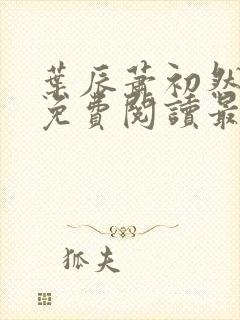 葉辰蕭初然
免費閱讀最
狐夫